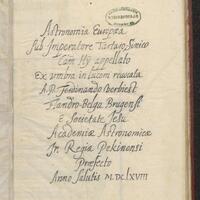 Astronomia Europæa
Sub Imperatore Tartaro-Sinico
Cám Hý appellato
Ex umbra in lucem revocata
A P. Ferdinando Verbiest
Flandro-Belga Brugensi
E Societate Jesu
Academiæ Astronomicæ
In Regia Pekinensi
Præfecto
Anno Salutis M.DC.LXVIII